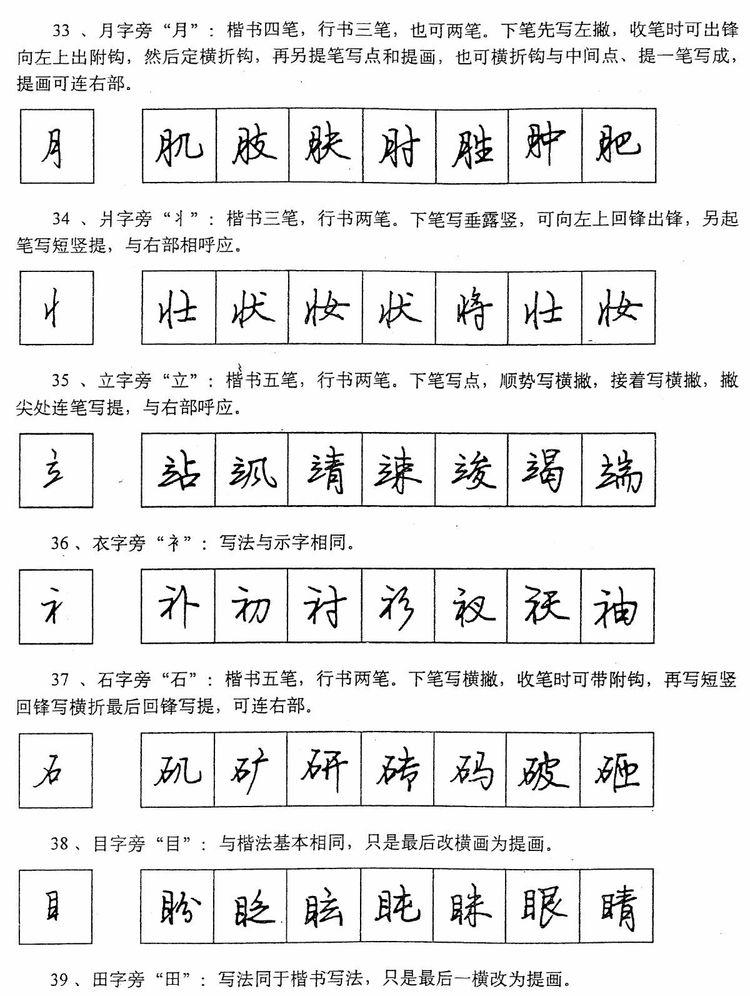 33 、月字旁“月”：楷书四笔，行书三笔，也可两笔。下笔先写左撇，收笔时可出锋
向左上出附钩，然后定横折钩，再另提笔写点和提画，也可横折钩与中间点、提一笔写成，
提画可连右部。
月 肌 肢 肤 肘 胜 肿 肥
34 、爿字旁“丬”：楷书三笔，行书两笔。下笔写垂露竖，可向左上回锋出锋，另起
笔写短竖提，与右部相呼应。
丬 壮 状 妆 状 将 壮 妆
35 、立字旁“立”：楷书五笔，行书两笔。下笔写点，顺势写横撇，接着写横撇，撇
尖处连笔写提，与右部呼应。
立 站 飒 靖 竦 竣 竭 端
36 、衣字旁“衤”：写法与示字相同。
衤 补 初 衬 衫 衩 袄 袖
37 、石字旁“石”：楷书五笔，行书两笔。下笔写横撇，收笔时可带附钩，再写短竖
回锋写横折最后回锋写提，可连右部。
石 矶 矿 研 砖 码 破 砸
38 、目字旁“目”：与楷法基本相同，只是最后改横画为提画。
目 盼 眨 眩 盹 眯 眼 睛
39 、田字旁“田”：写法同于楷书写法，只是最后一横改为提画。